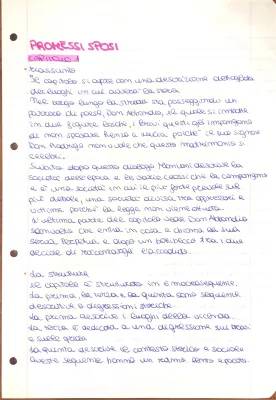 PROMESSI SPOSI
CAPITOLO 1
• riassunto
Il capitolo si apre con una descrizione dettagliata
dei luoghi in cui avverrà la storia.
Nel borgo lungo la strada sta passeggiando un
parroco di paese, Don Abbondio, il quale si imbatte
in due figure losche, i bravi questi gli impongono
di non sposare Renzo e Lucia perché il suo signore
Don Rodrigo non vuole che questo matrimonio si
celebri.
Subito dopo questo dialogo Manzoni descrive la
società dell'epoca e le classi sociali che la compongono
e è una società in cui il più forte prevale sul
più debole, una società divisa tra oppressori e
vittime perché la legge non viene attuata.
L'ultima parte del capitolo vede Don Abbondio
che entra in casa e chiama la sua
serva Perpetua e dopo un battibecco tra i due
decide di raccontargli l'accaduto.
• La struttura
Il capitolo è strutturato in 6 macrosequenze,
la prima, la terza e la quinta sono sequenze
descrittive e digressioni storiche.
La prima descrive i luoghi della vicenda.
La terza è dedicata a una digressione sui bravi
e sulle grida
La quinta descrive il contesto storico e sociale
Queste sequenze hanno un ritmo lento e posato.